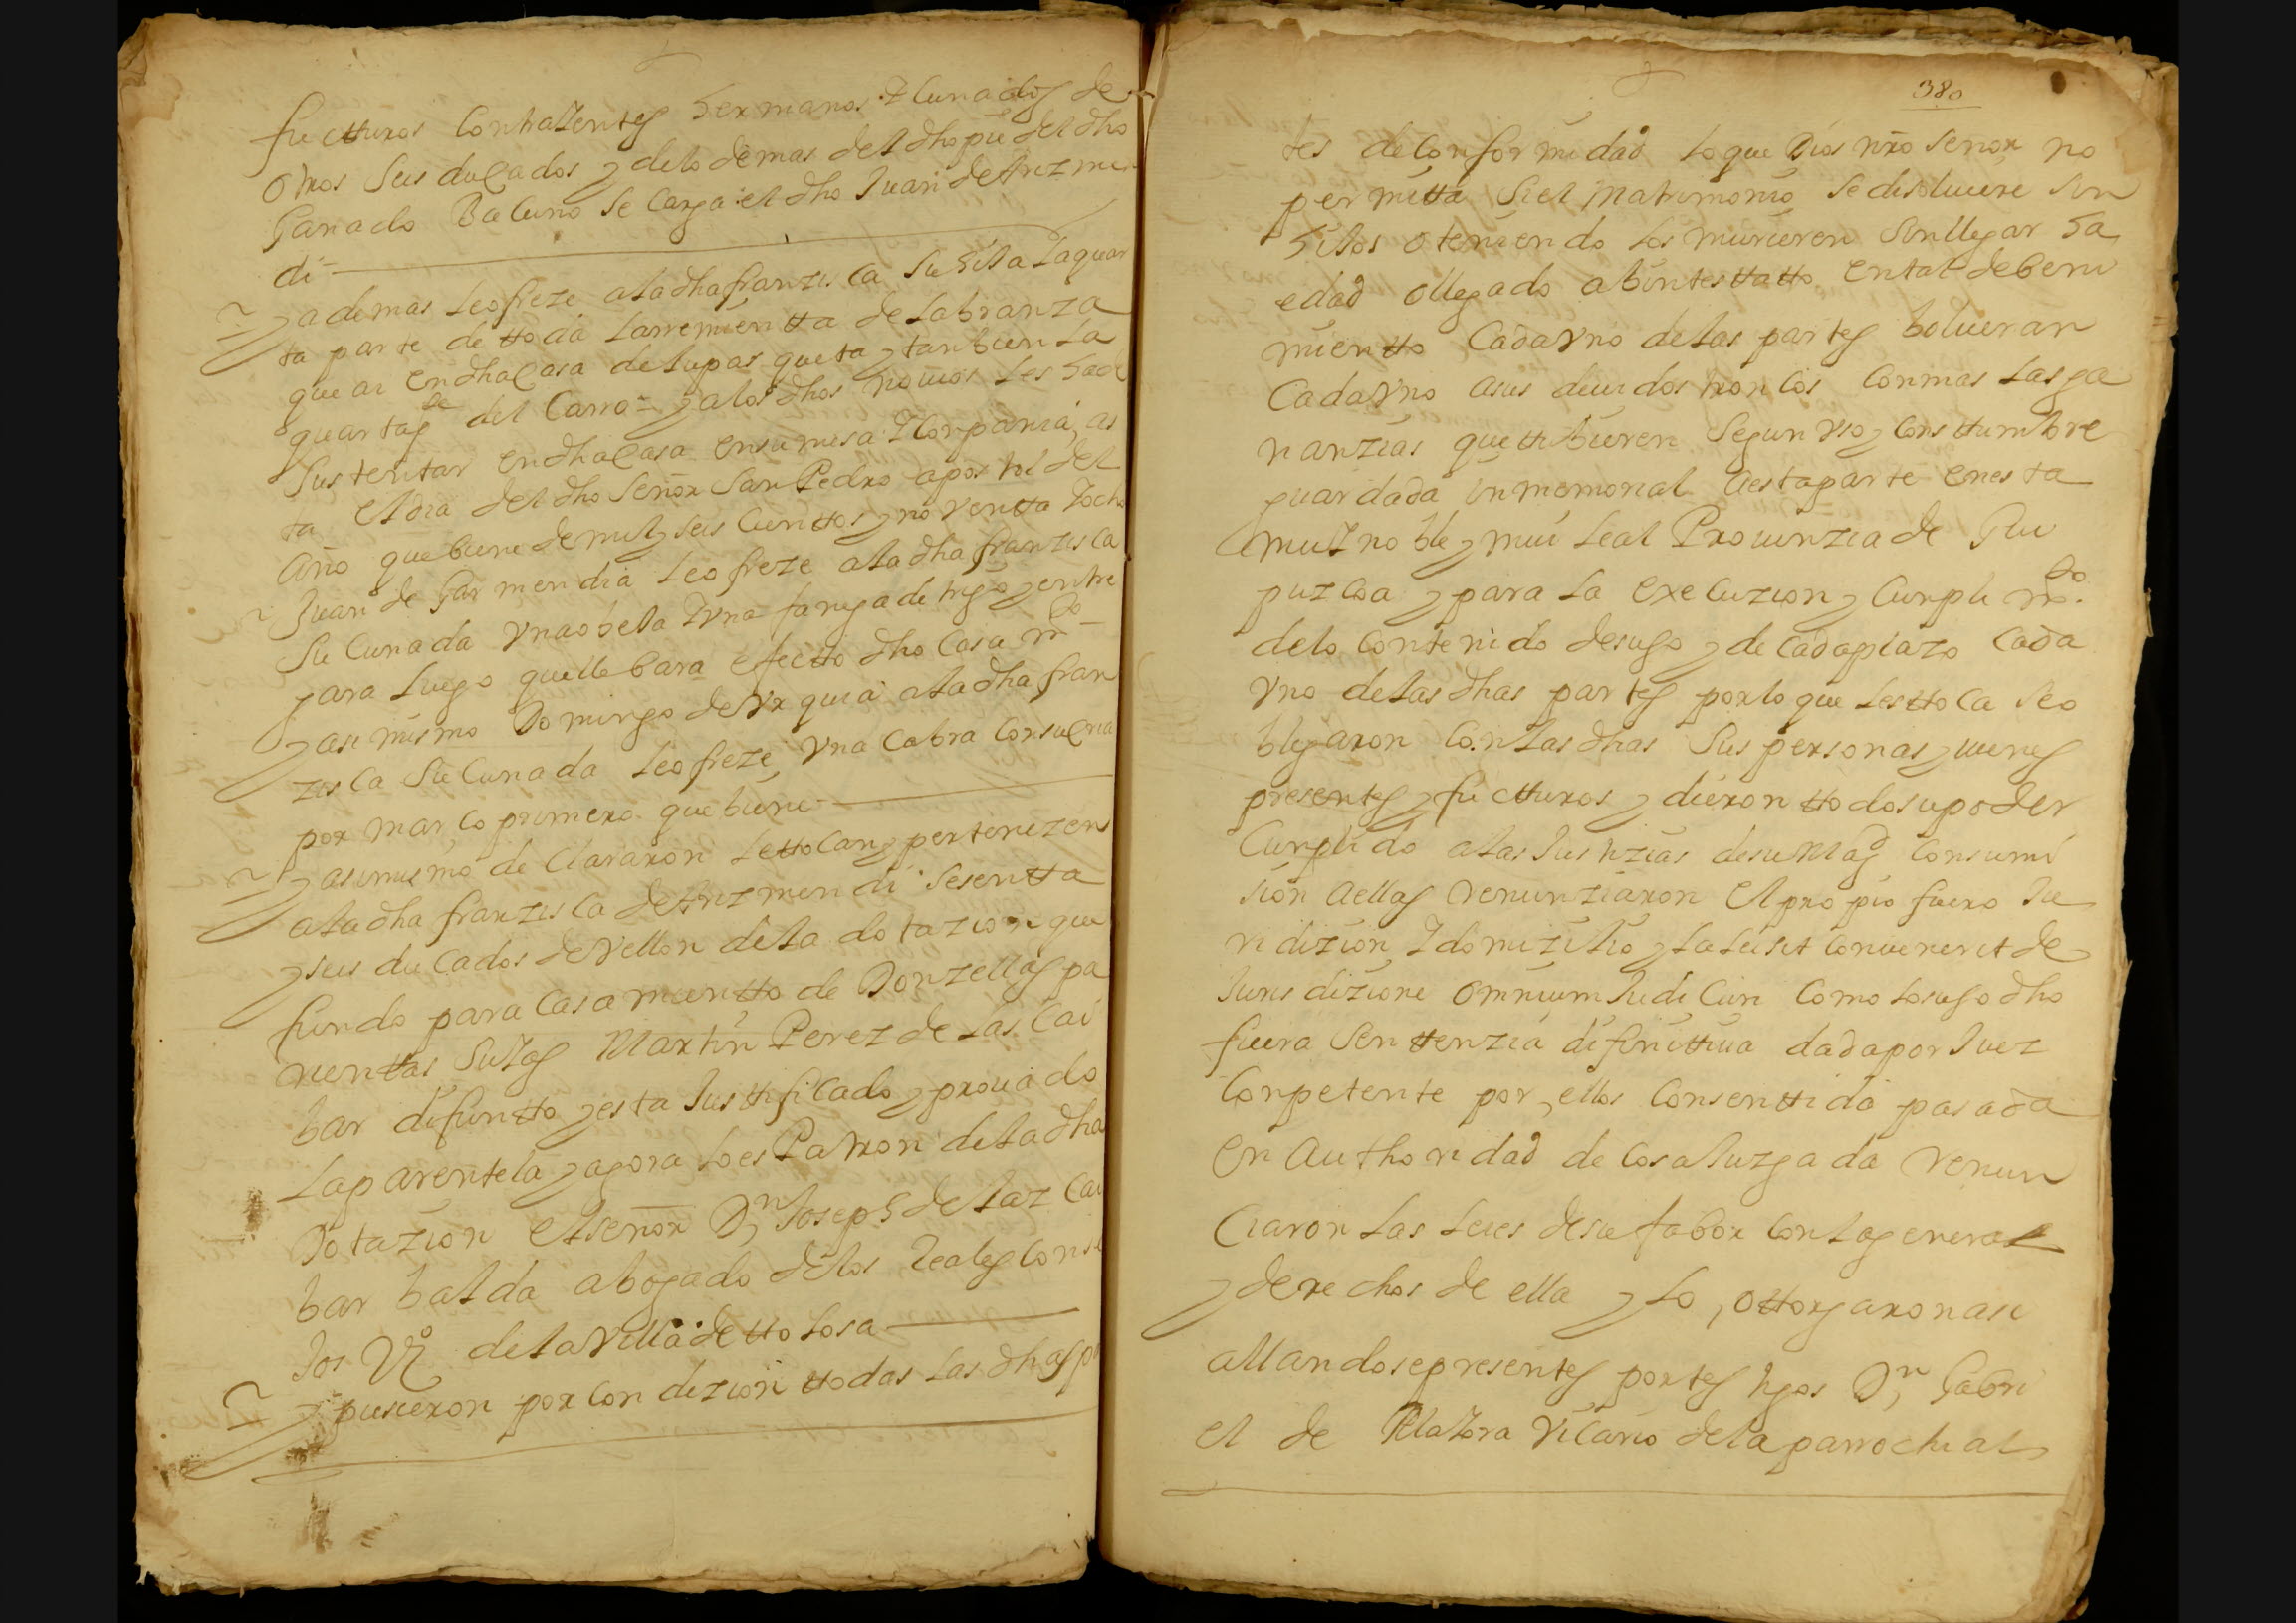 fucturos Contraientes hermanos Y Cunados de
otros seis ducados y de lo demas del dho pie del dho
Ganado Bacuno se Carga el dho Juan de Arizmen
di
y ademas le ofreze a la dha franzisca su hija La quar
ta parte de ttoda Larremientta de Labranza
que ai en dha Casa de Lupasqueta y tanbien La
quartas de del Carro = y a los dhos nouios les ha de
sustentar en dha Casa en su mesa Y Conpania, as
ta el dia del dho señor San Pedro apostol del
año que biene de mil y seis cientos y nobentta Y ocho
Juan de Garmendia le ofreze a la dha franzisca
su Cunada Vna obeja Y vna fanega de trigo y entre
gara luego que llebara efectto dho Casam.to
y asi mismo Domingo de Vrquia a la dha fran
zisca su Cunada le ofreze Vna Cabra con su Cria
por marco primero que biene
y asi mismo de Clararon le ttocan y pertenezen
a la dha franzisca de Arizmendi sesentta
y seis ducados de Vellon de la dotazion que
fundo para Casamientto de Donzellas pa
rienttas suias Martin Perez de Las Cai
bar difuntto y esta Justtificado y prouado
La parentela y agora lo es Patron de la dha
Dotazion el señor Dn Joseph de Laz Cai
bar balda abogado de los Reales Conse
jos Vº de la Villa de ttolosa
y pusieron por Condizion ttodas las dhas par
380
tes de Conformidad lo que Dios nro señor no
permitta si el Matrimonio se disoluiere sin
hijos o teniendo los murieren sin llegar ha
edad o llegado abinttesttatto en tal debeni
mientto Cada Vno de las partes bolueran
Cada Vno a sus deuidos troncos Con mas las ga
nanzias que ttubieren segun Vso y Consttumbre
guardada inmemorial aesta parte en esta
mui noble y mui Leal Prouinzia de Gui
puzcoa y para la execuzion y Cunplim.to
de lo Contenido de suso y de Cada plazo Cada
Vno de las dhas partes por lo que les ttoca se o
bligaron Con las dhas sus personas y uienes
presentes y fucturos y dieron ttodo su poder
Cunplido a las Justizias de su Magd Con sumi
sion a ellas renunziaron el propio fuero Ju
ridizion Y domizilio y la lei sit conuenerit de
Jurisdizione omnium Judicun Como lo suso dho
fuera senttenzia difinittiua dada por Juez
Conpetente por, ellos Consenttida pasada
en authoridad de Cosa Juzgada renun
Ciaron las leies de su fabor Con la general
y derechos de ella y lo, ottorgaron asi
allandose presentes por tesÿgos Dn Gabri
el de Olazora Vicario de la parrochial